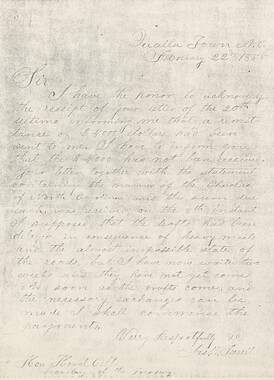 Qualla Town N.C.
February 22nd
Sir
I have the honor to acknowledge
the receipt of your letter of the 20th
ultimo informing me that a remit
tance of $5000 dollars had been
sent to me. I have to inform you
that the $5000 has not been received.
Your letter together with the statement
containing the names of the Cherokees
of North Carolina and the sum due
each, was received on the instant
I supposed that the drafts had been
detained in consequence of heavy rains
and the almost impossible state of
the roads, but I have now waited two
weeks and they have not yet come
As soon as the drafts come, and
the necessary exchanges can be
made I shall commence the
payments.
Very respectfully
Hon
Secretary of the